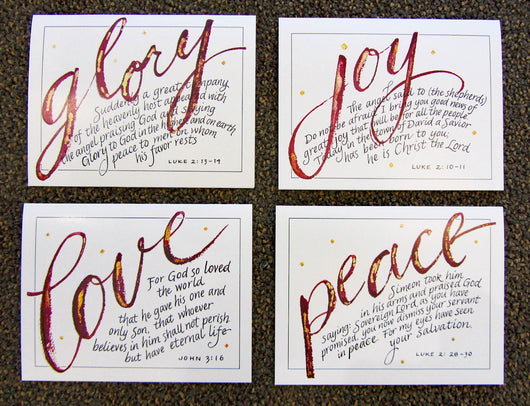 glory
Suddenly a great company
of the heavenly host appeared with
the angel praising God and saying
Glory to God in the highest and on earth
peace to men on whom
his favor rests
LUKE 2:13-14
joy
The angel said to (the shepherds)
Do not be afraid. I will bring you good news of
great joy that will be for all the people.
Today in the town of David a Savior
has been born to you,
he is Christ the Lord
LUKE 2:10-11
love
For God so loved
the world
that he gave his one and
only Son, that whoever
believes in him shall not perish
but have eternal life-
JOHN 3:16
peace
Simeon took him
in his arms and praised God
saying: Sovereign Lord, as you have
promised, you now dismiss your servant
in peace. For my eyes have seen
your Salvation.
LUKE 2:28-30